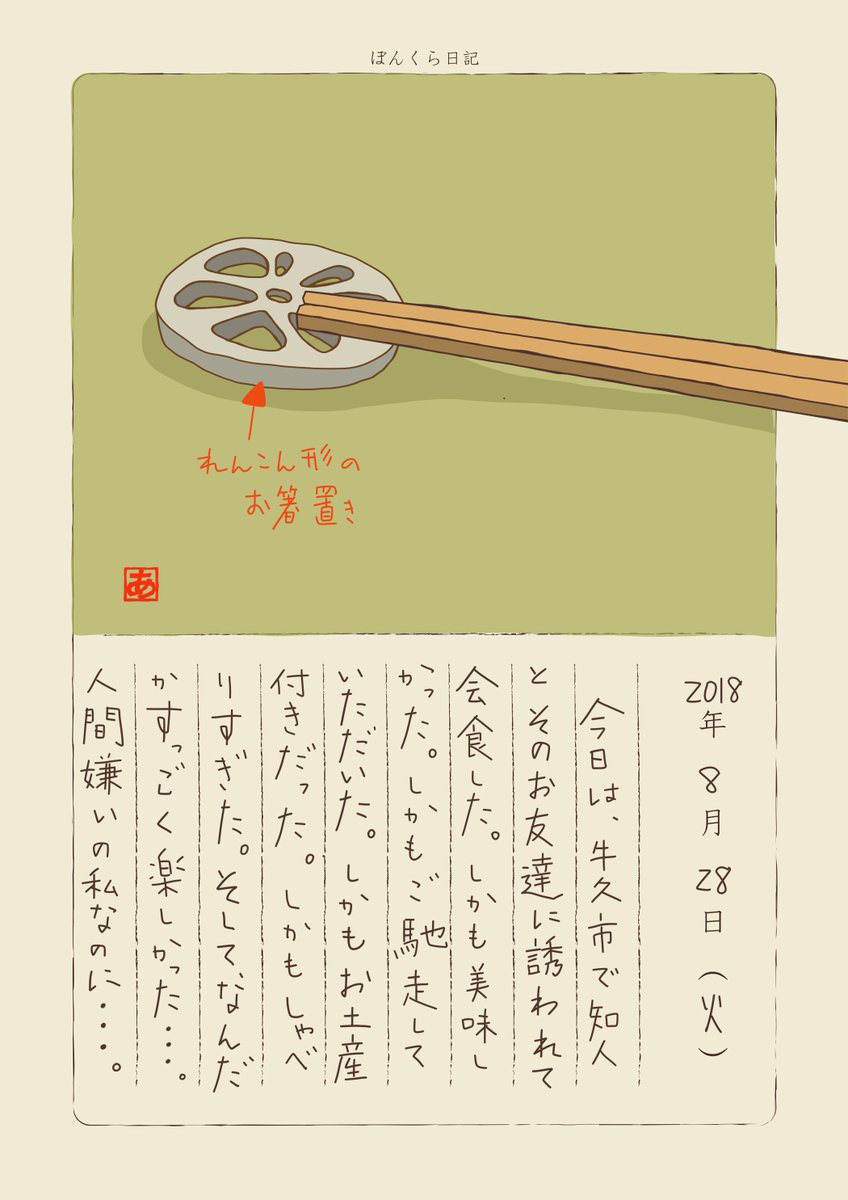 ぼんくら日記
れんこん形の
お箸置き
あ
2018年 8月 28日 (火)
今日は、牛久市で知人
とそのお友達に誘われて
会食した。しかも美味し
かった。しかもご馳走して
いただいた。しかもお土産
付きだった。しかもしゃべ
りすぎた。そして、なんだ
かすっごく楽しかった・・・。
人間嫌いの私なのに・・・。